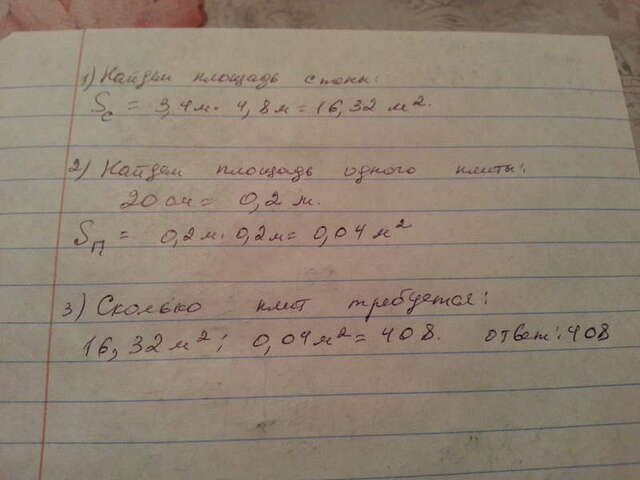 1) Найдем площадь стены:
Sс = 3,4м · 4,8м = 16,32 м².
2) Найдем площадь одного плиты:
20 см = 0,2 м.
Sп = 0,2м · 0,2м = 0,04 м²
3) Сколько плит требуется:
16,32 м² : 0,04 м² = 408. ответ: 408